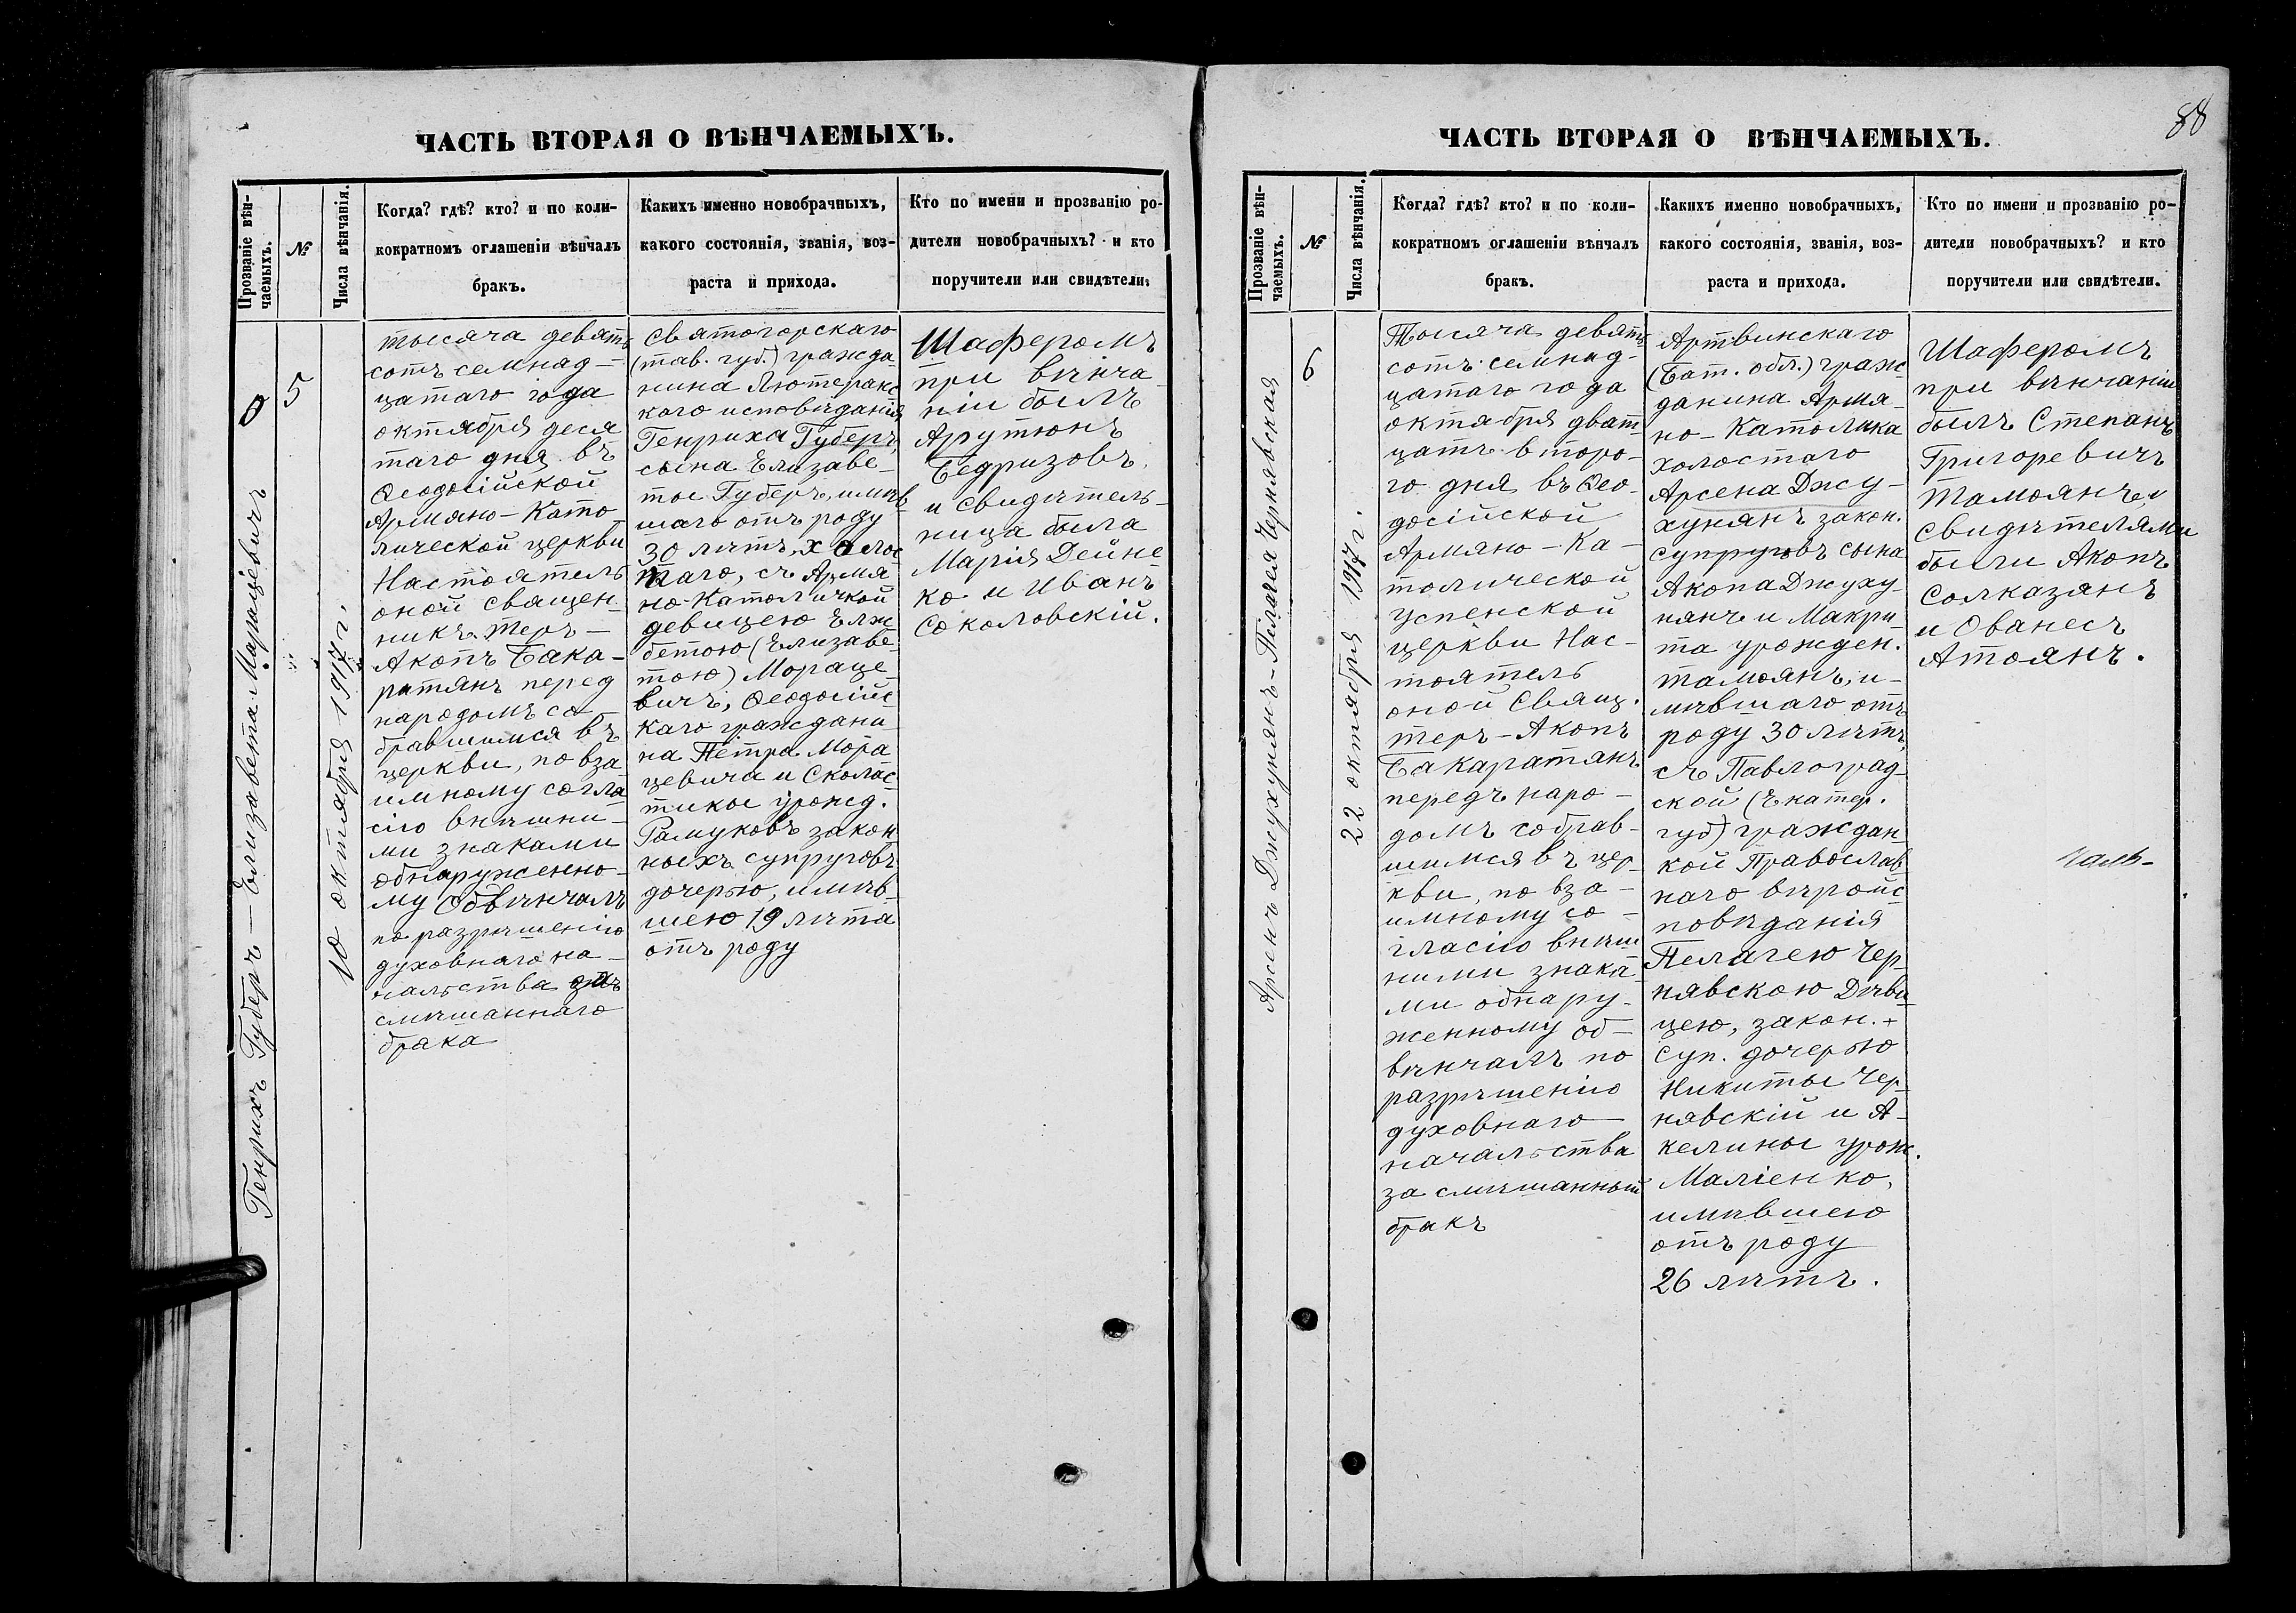 ЧАСТЬ ВТОРАЯ О ВѢНЧАЕМЫХЪ.
Прозваніе вѣн-
чаемыхъ.
№
Числа вѣнчанія.
Когда? гдѣ? кто? и по коли-
кократномъ оглашеніи вѣнчалъ
бракъ.
Какихъ именно новобрачныхъ,
какого состоянія, званія, воз-
раста и прихода.
Кто по имени и прозванію ро-
дители новобрачныхъ? и кто
поручители или свидѣтели.
Генрихъ Губеръ — Елизавета Марацевичъ
5
10 октября 1917 г.
тысяча девять
сотъ семнад-
цатаго года
октября деся
таго дня въ
Ѳеодосійской
Армяно-Като-
лической церкви
Настоятель
оной священ-
никъ теръ-
Акопъ Бака-
ратянъ перед
народомъ со-
бравшимся въ
церкви, по вза
имному согла
сію внѣшни-
ми знаками
обнаруженно-
му Обвѣнчалъ
по разрѣшенію
духовнаго на-
чальства
смѣшаннаго
брака
Святогорскаго
(тав. губ.) гражда
нина Лютеранс
каго исповѣданія
Генриха Губеръ,
сына Елизаве-
ты Губеръ, имѣв
шаго отъ роду
30 лѣтъ, холос
таго, съ Армя
но-Католичкой
девицею Елж
бетою (Елизаве-
тою) Мораце-
вичъ, Ѳеодосійс
каго граждани
на Петра Мора
цевича и Сколас
тики урожд.
Рамуковъ закон
ныхъ супруговъ
дочерью, имѣв-
шею 19 лѣта
отъ роду
Шаферомъ
при вѣнча-
ніи былъ
Арутюнъ
Бедризовъ,
и свидѣтель-
ница была
Марія Дейне
ко и Иванъ
Соколовскій.
88
ЧАСТЬ ВТОРАЯ О ВѢНЧАЕМЫХЪ.
Прозваніе вѣн-
чаемыхъ.
№
Числа вѣнчанія.
Когда? гдѣ? кто? и по коли-
кократномъ оглашеніи вѣнчалъ
бракъ.
Какихъ именно новобрачныхъ,
какого состоянія, званія, воз-
раста и прихода.
Кто по имени и прозванію ро-
дители новобрачныхъ? и кто
поручители или свидѣтели.
Арсенъ Джухунянъ-Пелагея Чернявская
6
22 октября 1917 г.
Тысяча девять
сотъ семнад-
цатаго года
октября двад-
цать второ-
го дня въ Ѳео-
досійской
Армяно-Ка-
толической
Успенской
церкви Нас-
тоятель
оной Свящ.
теръ-Акопъ
Бакаратянъ
передъ наро-
домъ собрав-
шимся въ цер
кви, по вза-
имному со-
гласію внѣш
ними знака-
ми обнару-
женному об-
вѣнчалъ по
разрѣшенію
духовнаго
начальства
за смѣшанный
бракъ
Артвинскаго
(Бат. обл.) граж-
данина Армя-
но-Католика
холостаго
Арсена Джу-
хунянъ закон.
супруговъ сына
Акопа Джуху-
нянъ и Макри
та урожден.
Тамоянъ, и-
мѣвшаго отъ
роду 30 лѣтъ,
съ Павлоград-
ской (Екатер.
губ) граждан
кой Православ
наго вѣроис
повѣданія
Пелагею Чер-
нявскою Дѣви
цею, закон.
Суп. дочерью
Никиты Чер-
нявскій и А-
келины урож.
Маліенко,
имѣвшею
отъ роду
26 лѣтъ.
Шаферомъ
при вѣнчаніи
былъ Степанъ
Григоревичъ
Тамоянъ, и
свидѣтелями
были Акопъ
Солказянъ
и Ованесъ
Атоянъ.